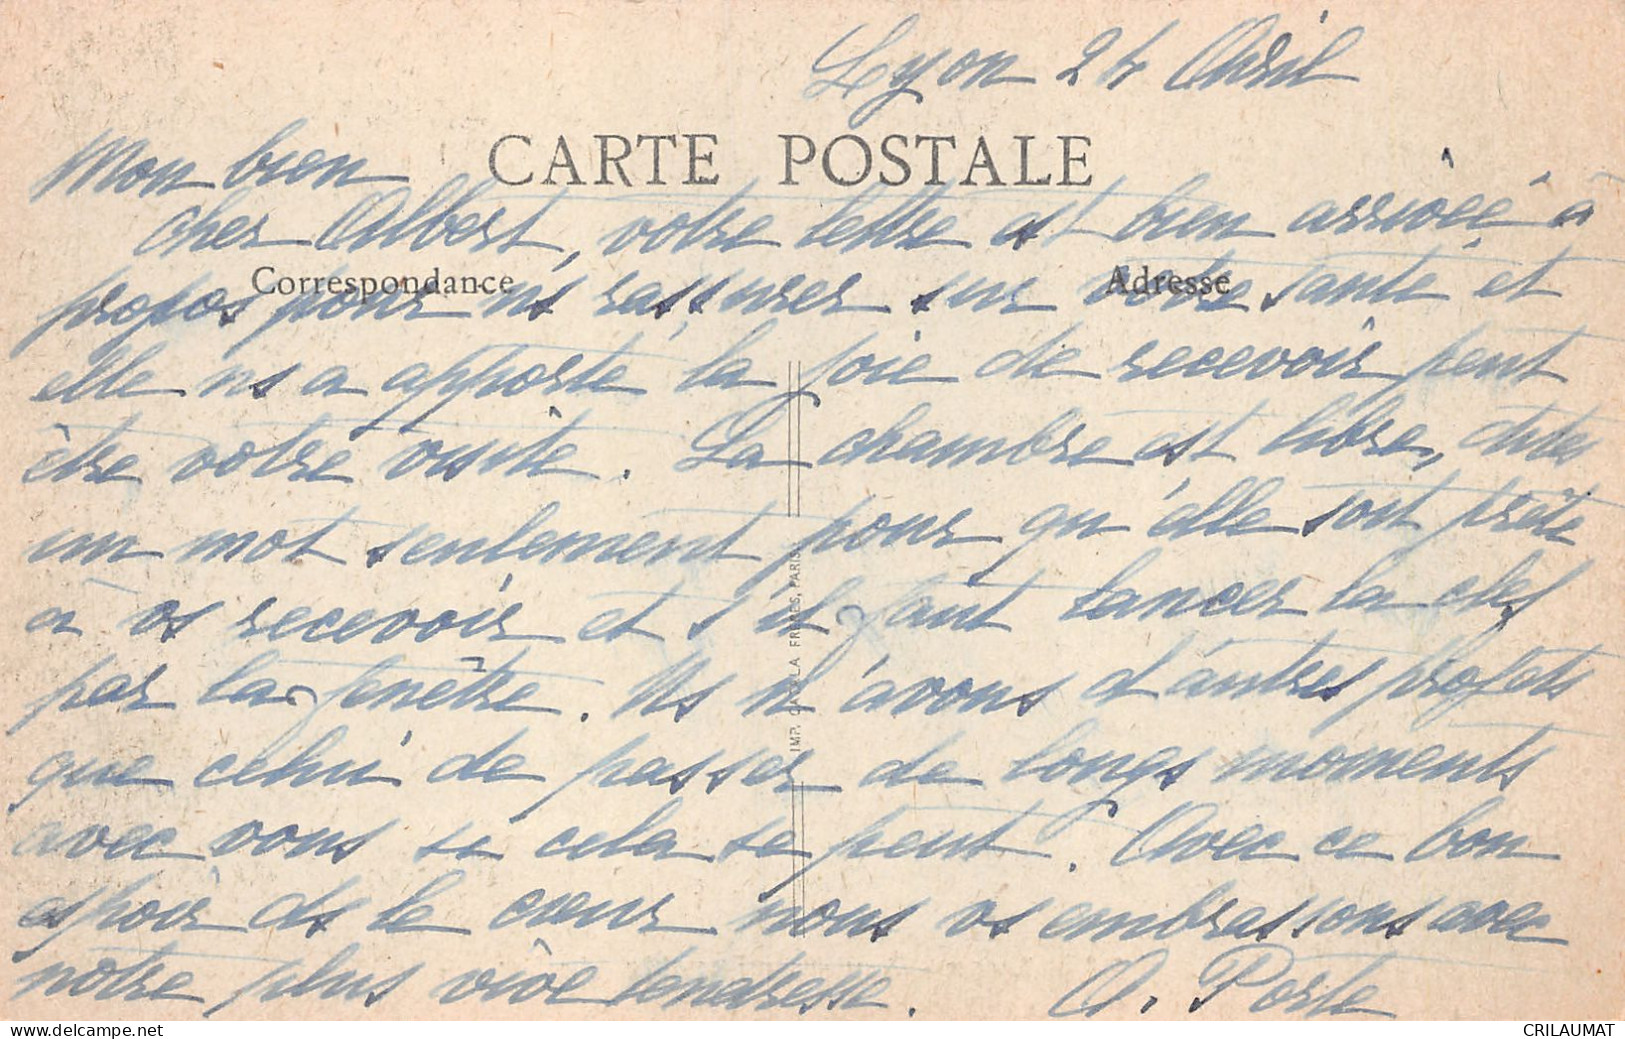 Lyon 24 Avril
CARTE POSTALE
Mon bien
cher Albert, votre lettre est bien arrivée à
Correspondance
Adresse
propos pour ns rassurer sur votre santé et
elle ns a apporté la joie de recevoir peut
être votre visite. La chambre est libre, dites
un mot seulement pour qu'elle soit prête
à vs recevoir et s'il faut lancer la clef
par la fenêtre. Ns n'avons d'autres projets
que celui de passer de longs moments
avec vous si cela se peut. Avec ce bon
espoir ds le cœur nous vs embrassons avec
notre plus vive tendresse. A. Porte
IMP. CATALA FRERES, PARIS
www.delcampe.net
CRILAUMAT